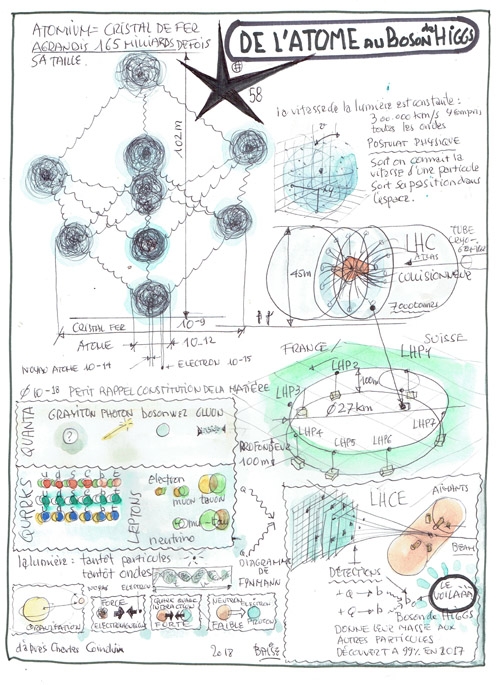 ATOMIUM = CRISTAL DE FER
AGRANDIS 165 MILLIARDS DE FOIS
SA TAILLE.
DE L'ATOME AU BOSON de HIGGS
58
102m
vitesse de la lumière est constante:
300.000 km/s
toutes les ondes
POSTULAT PHYSIQUE
Soit on connaît la
vitesse d'une particule
Soit sa position dans
l'espace.
45m
LHC
ATLAS
COLLISIONNEUR
TUBE
7000 tours
CRISTAL FER
10-9
ATOME
10-12
NOYAU ATOME 10-14
ELECTRON 10-15
Ø 10-18 PETIT RAPPEL CONSTITUTION DE LA MATIÈRE
FRANCE
SUISSE
LHP1
LHP2
LHP3
LHP4
LHP5
LHP6
LHP7
100m
Ø 27 km
PROFONDEUR
100m
QUANTA
GRAVITON PHOTON BOSON WEZ GLUON
?
QUARKS
u d s c b t
LEPTONS
electron
muon tauon
mu tau
neutrino
DIAGRAMME
DE
FYNMANN
la lumière: tantôt particules
tantôt ondes
NOYAU ELECTRON
GRAVITATION
FORCE
ELECTROMAGN
INTERACTION
FORTE
NEUTRON
ELECTRON
FAIBLE
PROTON
LHCE
AIMANTS
BEAM
DÉTECTIONS
LE
VOILAAA
Boson de HIGGS
DONNE LEUR MASSE AUX
AUTRES PARTICULES
DÉCOUVERT A 99% EN 2017
d'après Charles
2018
BALSE